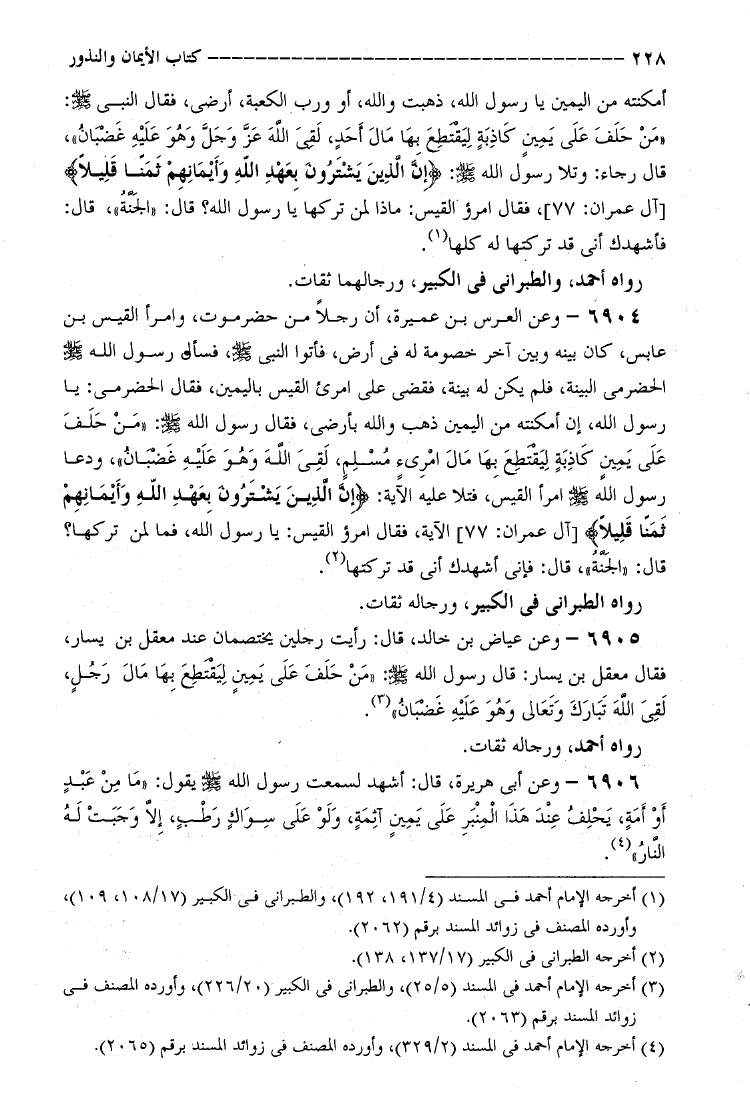 ٢٢٨ ----------------------------------- كتاب الأيمان والنذور
أمكنته من اليمين يا رسول الله، ذهبت والله، أو ورب الكعبة، أرضى، فقال النبى ﷺ:
«مَنْ حَلَفَ عَلَى يَمِينٍ كَاذِبَةٍ لِيَقْتَطِعَ بِهَا مَالَ أَحَدٍ، لَقِىَ اللَّهَ عَزَّ وَجَلَّ وَهُوَ عَلَيْهِ غَضْبَانُ»،
قال رجاء: وتلا رسول الله ﷺ: ﴿إِنَّ الَّذِينَ يَشْتَرُونَ بِعَهْدِ اللهِ وَأَيْمَانِهِمْ ثَمَنًا قَلِيلاً﴾
[آل عمران: ٧٧]، فقال امرؤ القيس: ماذا لمن تركها يا رسول الله؟ قال: «الجَنَّةُ»، قال:
فأشهدك أنى قد تركتها له كلها(١).
رواه أحمد، والطبرانى فى الكبير، ورجالهما ثقات.
٦٩٠٤ – وعن العرس بن عميرة، أن رجلاً من حضرموت، وامرأ القيس بن
عابس، كان بينه وبين آخر خصومة له فى أرض، فأتوا النبى ﷺ، فسأل رسول الله ﷺ
الحضرمى البينة، فلم يكن له بينة، فقضى على امرئ القيس باليمين، فقال الحضرمى: يا
رسول الله، إن أمكنته من اليمين ذهب والله بأرضى، فقال رسول الله ﷺ: «مَنْ حَلَفَ
عَلَى يَمِينٍ كَاذِبَةٍ لِيَقْتَطِعَ بِهَا مَالَ امْرِىءٍ مُسْلِمٍ، لَقِىَ اللَّهَ وَهُوَ عَلَيْهِ غَضْبَانُ»، ودعا
رسول الله ﷺ امرأ القيس، فتلا عليه الآية: ﴿إِنَّ الَّذِينَ يَشْتَرُونَ بِعَهْدِ اللهِ وَأَيْمَانِهِمْ
ثَمَنًا قَلِيلاً﴾ [آل عمران: ٧٧] الآية، فقال امرؤ القيس: يا رسول الله، فما لمن تركها؟
قال: «الجَنَّةُ»، قال: فإنى أشهدك أنى قد تركتها(٢).
رواه الطبرانى فى الكبير، ورجاله ثقات.
٦٩٠٥ – وعن عياض بن خالد، قال: رأيت رجلين يختصمان عند معقل بن يسار،
فقال معقل بن يسار: قال رسول الله ﷺ: «مَنْ حَلَفَ عَلَى يَمِينٍ لِيَقْتَطِعَ بِهَا مَالَ رَجُلٍ،
لَقِىَ اللَّهَ تَبَارَكَ وَتَعَالى وَهُوَ عَلَيْهِ غَضْبَانُ»(٣).
رواه أحمد، ورجاله ثقات.
٦٩٠٦ – وعن أبى هريرة، قال: أشهد لسمعت رسول الله ﷺ يقول: «مَا مِنْ عَبْدٍ
أَوْ أَمَةٍ، يَحْلِفُ عِنْدَ هَذَا الْمِنْبَرِ عَلَى يَمِينٍ آثِمَةٍ، وَلَوْ عَلَى سِوَاكٍ رَطْبٍ، إِلاَّ وَجَبَتْ لَهُ
النَّارُ»(٤).
(١) أخرجه الإمام أحمد فى المسند (١٩١/٤، ١٩٢)، والطبرانى فى الكبير (١٠٨/١٧، ١٠٩)،
وأورده المصنف فى زوائد المسند برقم (٢٠٦٢).
(٢) أخرجه الطبرانى فى الكبير (١٣٧/١٧، ١٣٨).
(٣) أخرجه الإمام أحمد فى المسند (٢٥/٥)، والطبرانى فى الكبير (٢٢٦/٢٠)، وأورده المصنف فى
زوائد المسند برقم (٢٠٦٣).
(٤) أخرجه الإمام أحمد فى المسند (٣٢٩/٢)، وأورده المصنف فى زوائد المسند برقم (٢٠٦٥).